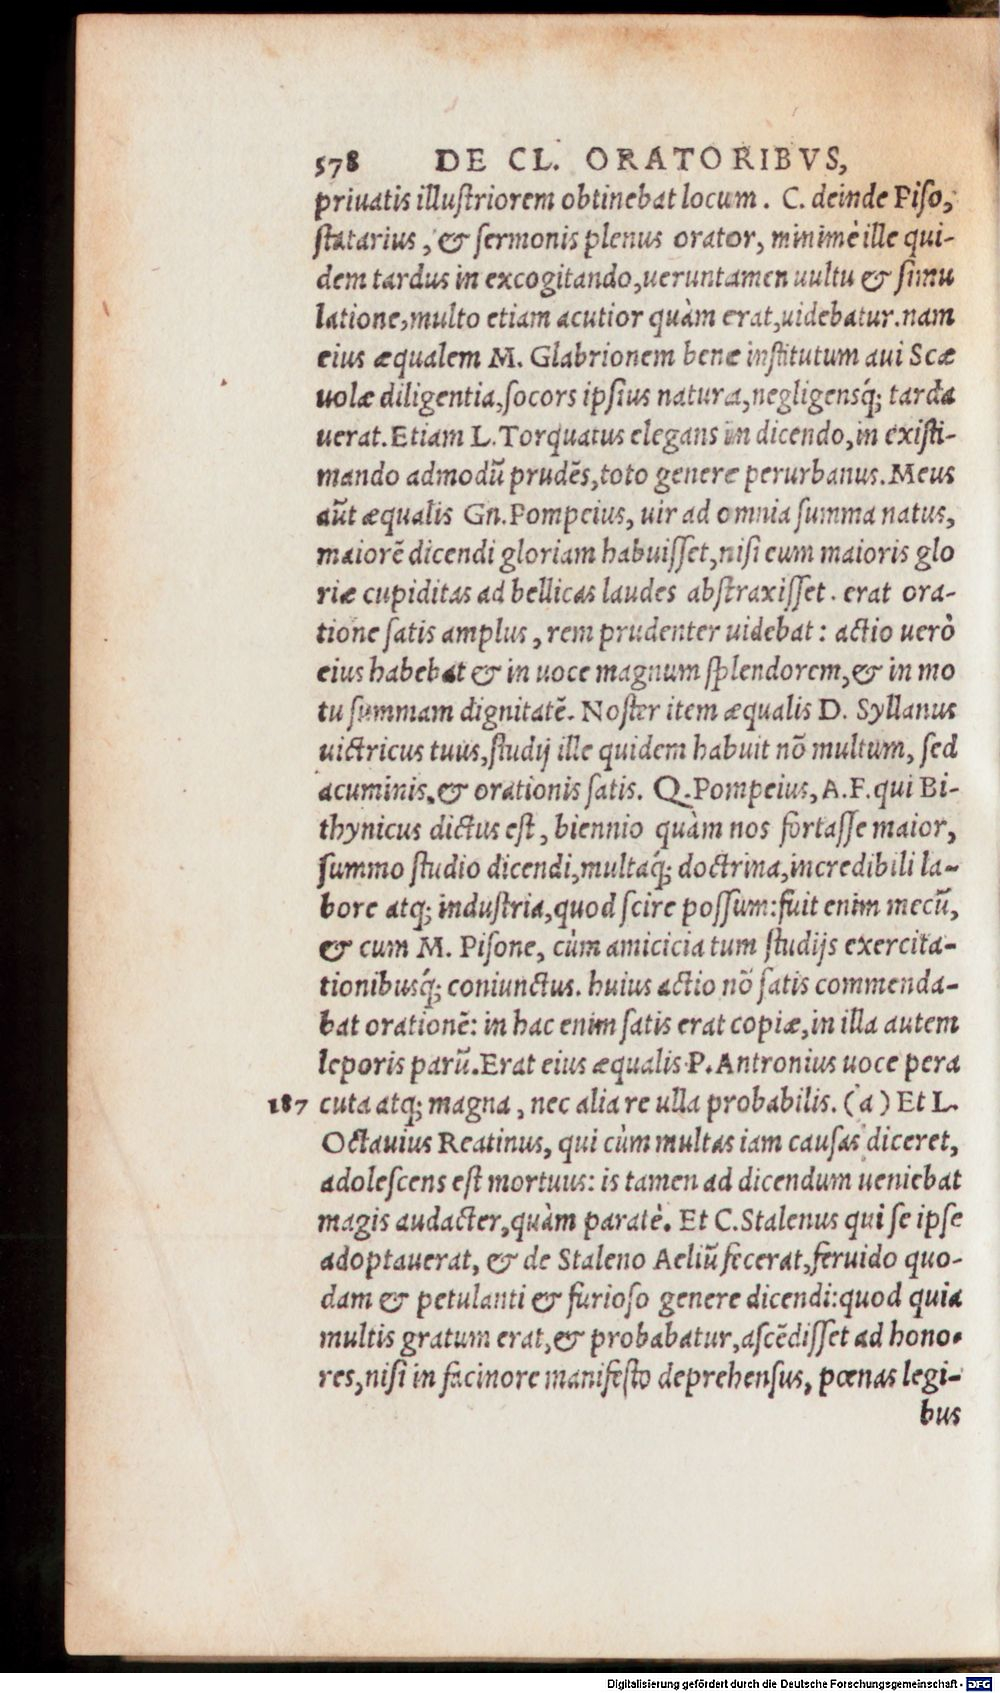 578 DE CL. ORATORIBVS,
priuatis illuſtriorem obtinebat locum. C. deinde Piſo,
ſtatarius, & ſermonis plenus orator, minimè ille qui-
dem tardus in excogitando, ueruntamen uultu & ſimu
latione, multo etiam acutior quàm erat, uidebatur. nam
eius æqualem M. Glabrionem bene inſtitutum aui Scæ
uolæ diligentia, ſocors ipſius natura, negligensq́; tarda
uerat. Etiam L. Torquatus elegans in dicendo, in exiſti-
mando admodū prudēs, toto genere perurbanus. Meus
aūt æqualis Gn. Pompeius, uir ad omnia ſumma natus,
maiorē dicendi gloriam habuiſſet, niſi eum maioris glo
riæ cupiditas ad bellicas laudes abſtraxiſſet. erat ora-
tione ſatis amplus, rem prudenter uidebat: actio uerò
eius habebat & in uoce magnum ſplendorem, & in mo
tu ſummam dignitatē. Noſter item æqualis D. Syllanus
uictricus tuus, ſtudij ille quidem habuit nō multum, ſed
acuminis, & orationis ſatis. Q. Pompeius, A. F. qui Bi-
thynicus dictus eſt, biennio quàm nos fortaſſe maior,
ſummo ſtudio dicendi, multaq́; doctrina, incredibili la-
bore atq; induſtria, quod ſcire poſſum: fuit enim mecū,
& cum M. Piſone, cùm amicicia tum ſtudijs exercita-
tionibusq́; coniunctus. huius actio nō ſatis commenda-
bat orationē: in hac enim ſatis erat copiæ, in illa autem
leporis parū. Erat eius æqualis P. Antronius uoce pera
187 cuta atq; magna, nec alia re ulla probabilis. (a) Et L.
Octauius Reatinus, qui cùm multas iam cauſas diceret,
adoleſcens eſt mortuus: is tamen ad dicendum ueniebat
magis audacter, quàm paratè. Et C. Stalenus qui ſe ipſe
adoptauerat, & de Staleno Aeliū fecerat, feruido quo-
dam & petulanti & furioſo genere dicendi: quod quia
multis gratum erat, & probabatur, aſcēdiſſet ad hono-
res, niſi in facinore manifeſto deprehenſus, pœnas legi-
bus
Digitalisierung gefördert durch die Deutsche Forschungsgemeinschaft - DFG